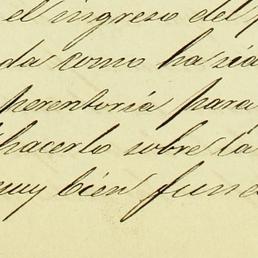 el ingreso del
da como ha sid
perentoria para
hacerlo sobre la
muy bien fund